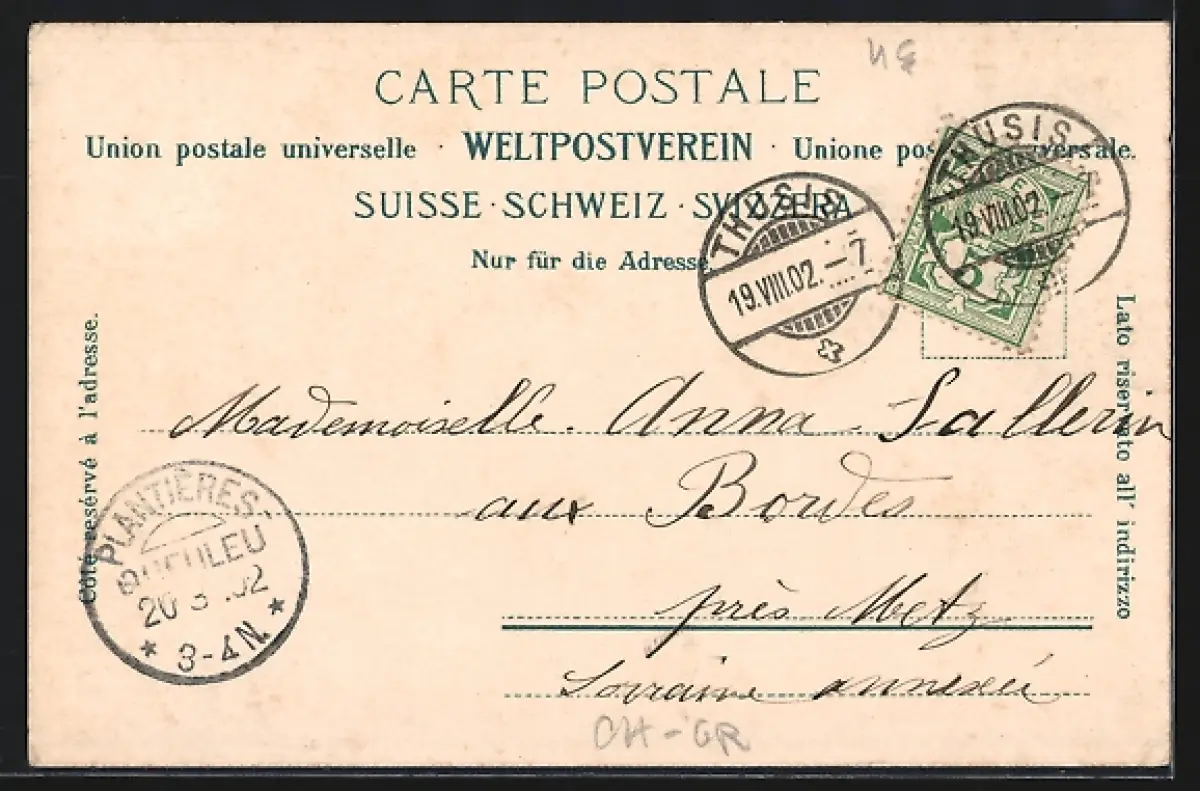 CARTE POSTALE
Union postale universelle · WELTPOSTVEREIN · Unione pos versale.
SUISSE · SCHWEIZ · SVIZZERA
Nur für die Adresse.
THUSIS
19.VIII.02.–7
THUSIS
19.VIII.02. 7
5
Côté resérvé à l'adresse.
Lato riservato all' indirizzo
Mademoiselle. Anna Sallerin
aux Bordes
près Metz
Lorraine annexée
PLANTIÈRES-
QUEULEU
20 8 .02
3-4N.
CH-GR